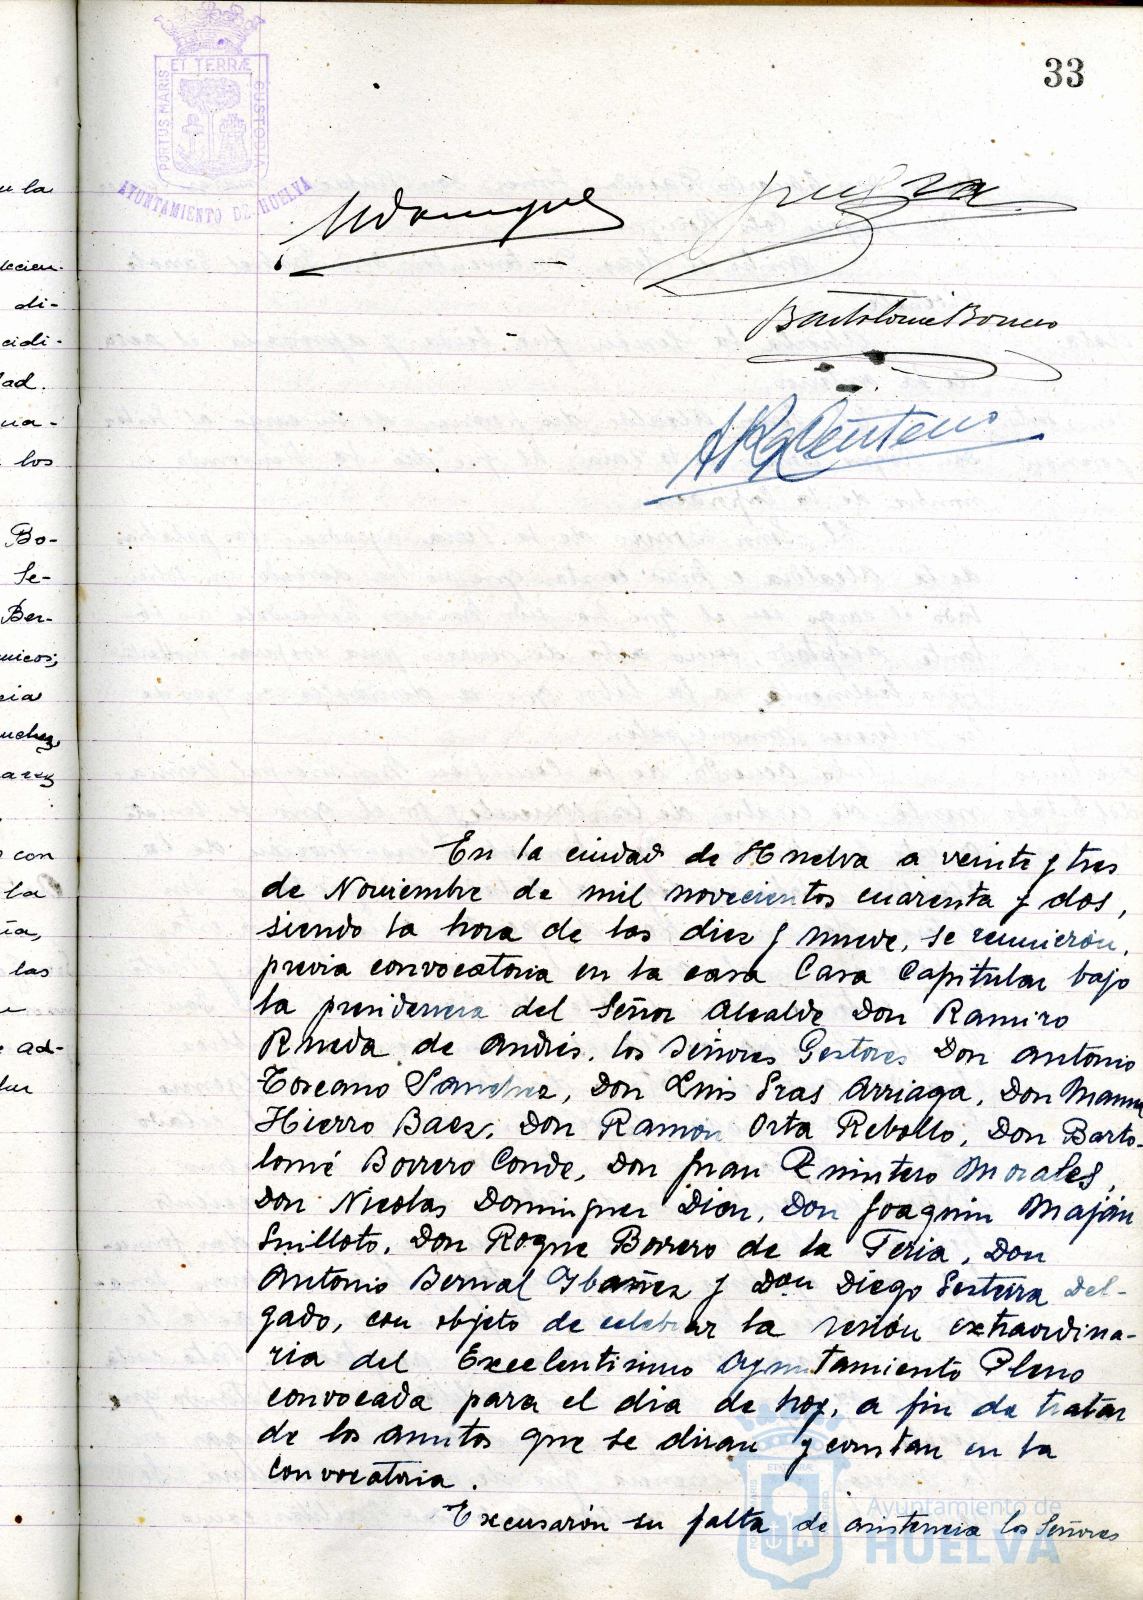 33
PORTUS MARIS ET TERRÆ CUSTODIA
AYUNTAMIENTO DE HUELVA
Bartolomé Borrero
En la ciudad de Huelva a veinte y tres
de Noviembre de mil novecientos cuarenta y dos,
siendo la hora de las diez y nueve, se reunieron,
previa convocatoria en la casa Casa Capitular bajo
la presidencia del Señor Alcalde Don Ramiro
Rueda de Andrés, los Señores Gestores Don Antonio
Toscano Sanchez, Don Luis Gras Arriaga, Don Manuel
Hierro Baez, Don Ramon Orta Rebollo, Don Barto-
lomé Borrero Conde, Don Juan Quintero Morales,
Don Nicolas Dominguez Diaz, Don Joaquin Maján
Guilloto, Don Roque Borrero de la Feria, Don
Antonio Bernal Ybañez y Don Diego Del-
gado, con objeto de celebrar la sesión extraordina-
ria del Excelentisimo Ayuntamiento Pleno
convocada para el dia de hoy, a fin de tratar
de los asuntos que se diran y constan en la
convocatoria.
Excusarón su falta de asistencia los Señores
Ayuntamiento de
HUELVA
u la
di-
cidi-
dad.
ua-
los
Bo-
Se-
Ber-
con
la
las
ad-